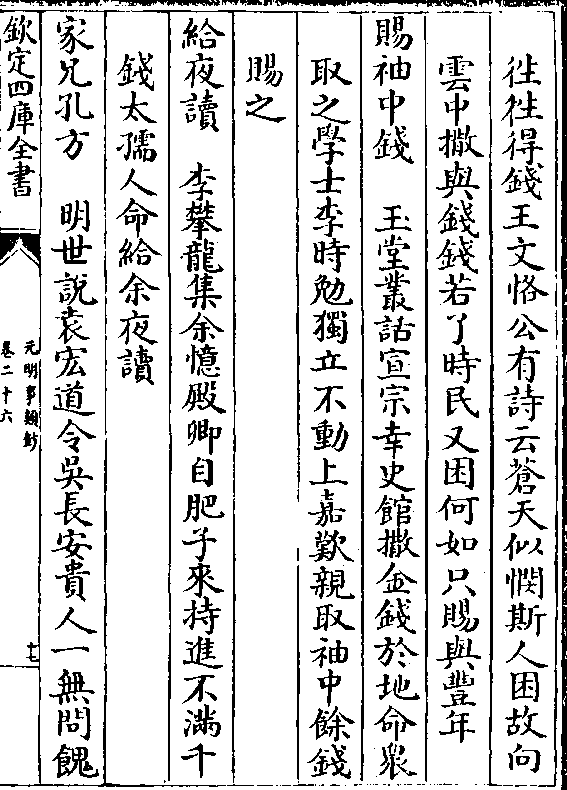 徃徃得錢王文恪公有詩云蒼天似憫斯人困故向
雲中撒與錢錢若了時民又困何如只賜與豐年
賜袖中錢　玉堂叢話宣宗幸史館撒金錢於地命衆
取之學士李時勉獨立不動上嘉歎親取袖中餘錢
賜之
給夜讀　李攀龍集余憶殿卿自肥子來持進不滿千
錢太孺人命給余夜讀
家兄孔方　明世說袁宏道令吳長安貴人一無問餽
欽定四庫全書
元明事類鈔
卷二十六
十七